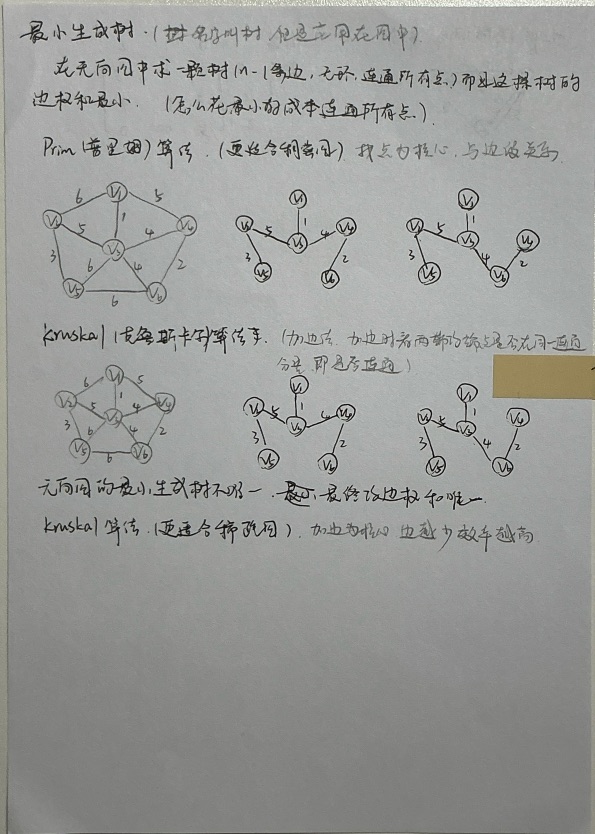 最小生成树.(树名字叫树 但是应用在图中)
在无向图中求一颗树(n-1条边,无环,连通所有点)而且这棵树的
边权和最小. (怎么花最小的成本连通所有点).
Prim(普里姆)算法.(更适合稠密图) 找点为核心,与边做关系.
V1 6 5 V2 5 1 4 V4 V3 3 6 4 2 V5 6 V6
V1 V2 5 1 V4 V3 4 3 2 V5 V6
V1 V2 5 1 V4 V3 4 2 3 V5 V6
Kruskal(克鲁斯卡尔)算法. (加边法,加边时看两端的端点是否在同一连通
分量,即是否连通)
V1 6 5 V2 5 1 4 V4 V3 3 6 4 2 V5 6 V6
V1 V2 5 1 V4 V3 4 3 2 V5 V6
V1 V2 5 1 V4 V3 4 2 3 V5 V6
无向图的最小生成树不唯一. 最终边权和唯一.
Kruskal算法.(更适合稀疏图). 加边为核心 边越少效率越高